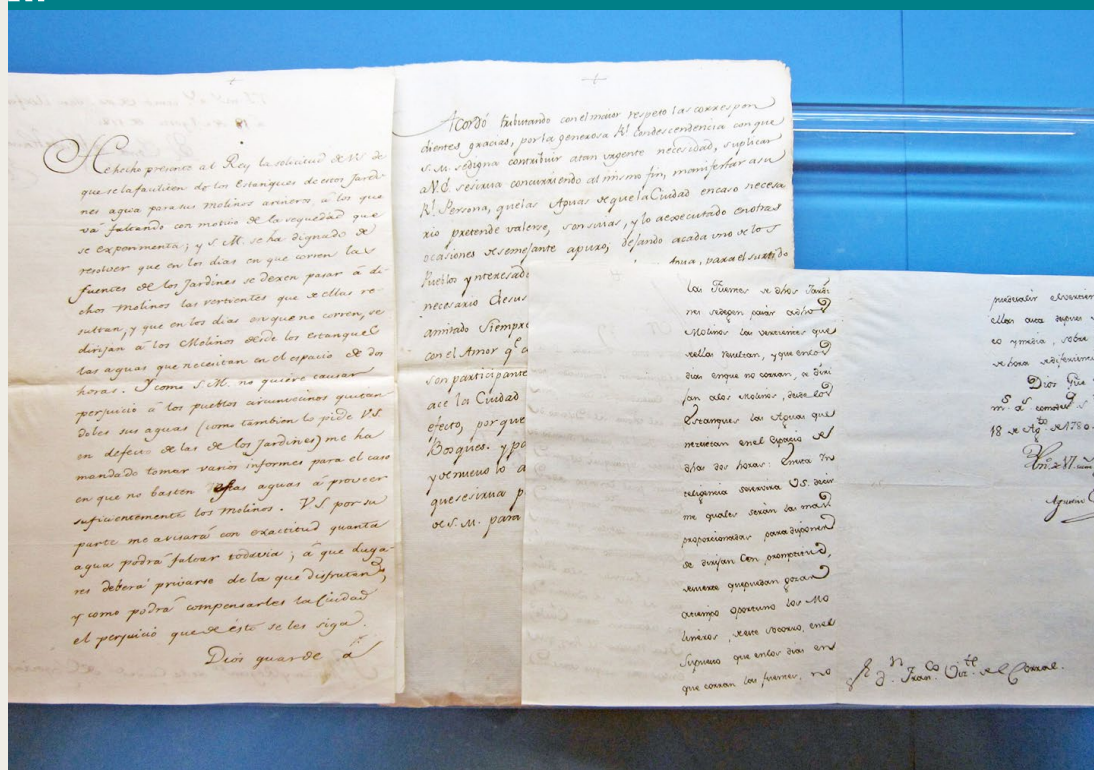 He hecho presente al Rey la solicitud de VS de
que se la faciliten de los Estanques de estos Jardi-
nes agua para sus Molinos arineros, á los que
vá faltando con motivo de la sequedad que
se experimenta; y S. M. se ha dignado de
resolver que en los dias en que corren las
fuentes de los Jardines se dexen pasar á di-
chos Molinos las vertientes que de ellas re-
sultan, y que en los dias en que no corren, se
dirijan á los Molinos desde los estanques
las aguas que necesitan en el espacio de dos
horas. Y como S. M. no quiere causar
perjuicio á los pueblos circunvecinos quitan
doles sus aguas (como tambien lo pide V.S.
en defecto de las de los Jardines) me ha
mandado tomar varios informes para el caso
en que no basten estas aguas á proveer
suficientemente los Molinos. V.S. por su
parte me avisará con exactitud quanta
agua podrá faltar todavia; á que luga-
res deberá privarse de la que disfrutan,
y como podrá compensarles la Ciudad
el perjuicio que de éste se les siga.
Dios guarde á
Acordó tributando con el maior respeto las correspon
dientes gracias, por la generosa Rl. Condescendencia con que
S.M. se digna contribuir a tan urgente necesidad, suplicar
a V.E. se sirva concurriendo al mismo fin, manifestar a su
Rl. Persona, que las Aguas de que la Ciudad en caso necesa
rio pretende valerse, son suias, y lo a executado en otras
ocasiones de semejante apuro, dejando a cada uno de los
Pueblos y nteresad
necesario de sus
amitado Siempre
con el Amor q.e
son participante
ace la Ciudad
efecto, porque
Bosques. y pa
y de nuevo lo a
que se sirva p
de S.M. para
Agua, para el surtido
las Fuentes de dhos Jardi
nes se dejen pasar a dhos
Molinos las vertientes que
de ellas resultan, y que en los
dias en que no corran, se diri
jan a los Molinos, desde los
Estanques las Aguas que
necesitan en el espacio de
dos horas: En esta In
teligencia se servira V.S. decir
me quales serán las mas
proporcionadas para disponer
se dirijan con prontitud,
que puedan gozar
a tiempo oportuno los Mo
lineros, de este socorro, en el
Supuesto que en los dias en
que corran las fuentes, no
ellas
co y media, sobre
de hora
Dios Gue
m. a. como
18 de Agto. de 1780.
Sr. Dn. Franco. Ortiz del Corral.